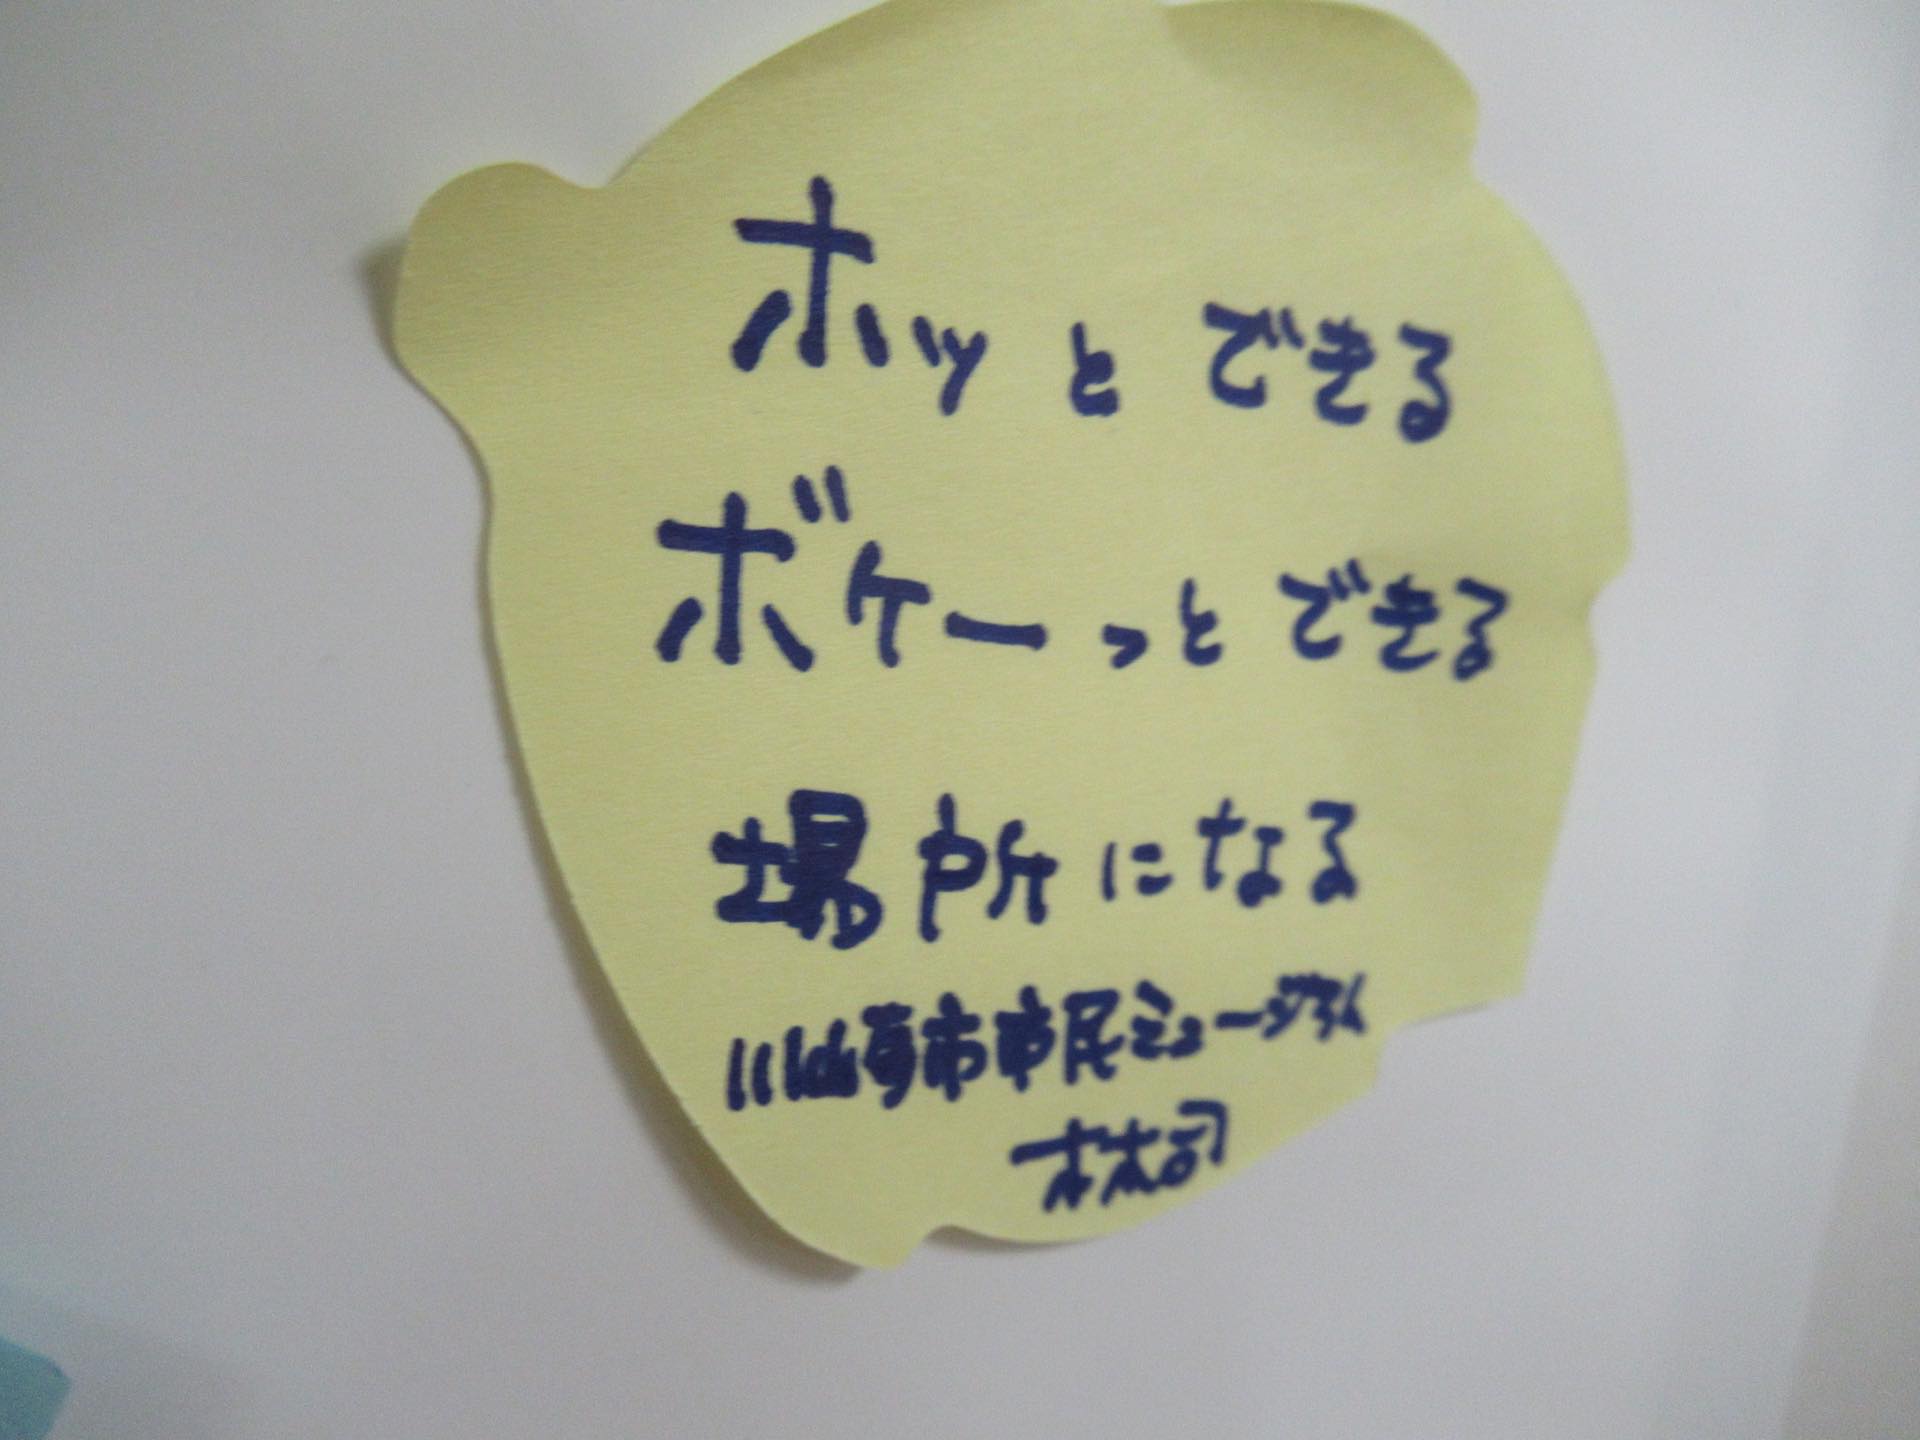 ホッとできる
ボケーっとできる
場所になる
川崎市市民ミュージアム
林司